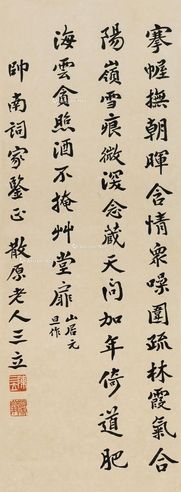 搴幄撫朝暉含情眾噪圍疏林霞氣合
陽嶺雪痕微深念藏天問加年倚道肥
海雲貪照酒不掩艸堂扉 山居元
旦作
帥南詞家鑒正 散原老人三立